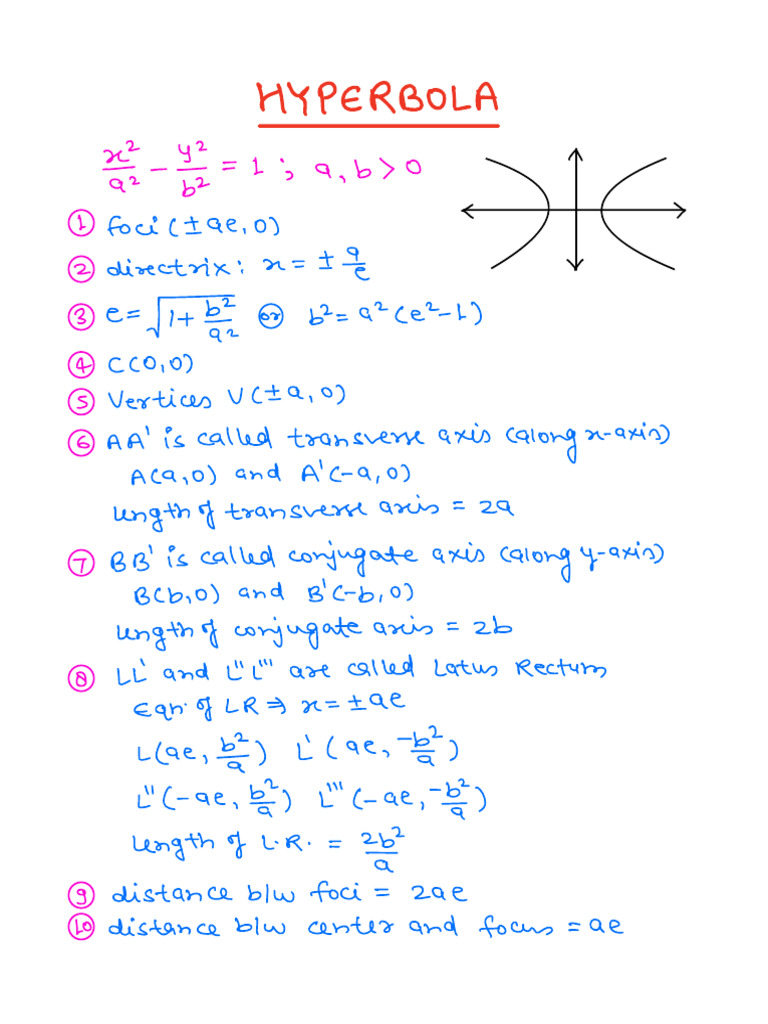 HYPERBOLA
x²/a² − y²/b² = 1 ; a, b > 0
① foci (±ae, 0)
② directrix: x = ± a/e
③ e = √(1 + b²/a²) or b² = a² (e² − 1)
④ C(0,0)
⑤ Vertices V(±a, 0)
⑥ AA' is called transverse axis (along x-axis)
A(a,0) and A'(-a,0)
length of transverse axis = 2a
⑦ BB' is called conjugate axis (along y-axis)
B(b,0) and B'(-b,0)
length of conjugate axis = 2b
⑧ LL' and L"L''' are called Latus Rectum
Eqn. of LR ⇒ x = ±ae
L(ae, b²/a) L'(ae, -b²/a)
L"(-ae, b²/a) L'''(-ae, -b²/a)
length of L.R. = 2b²/a
⑨ distance b/w foci = 2ae
⑩ distance b/w center and focus = ae